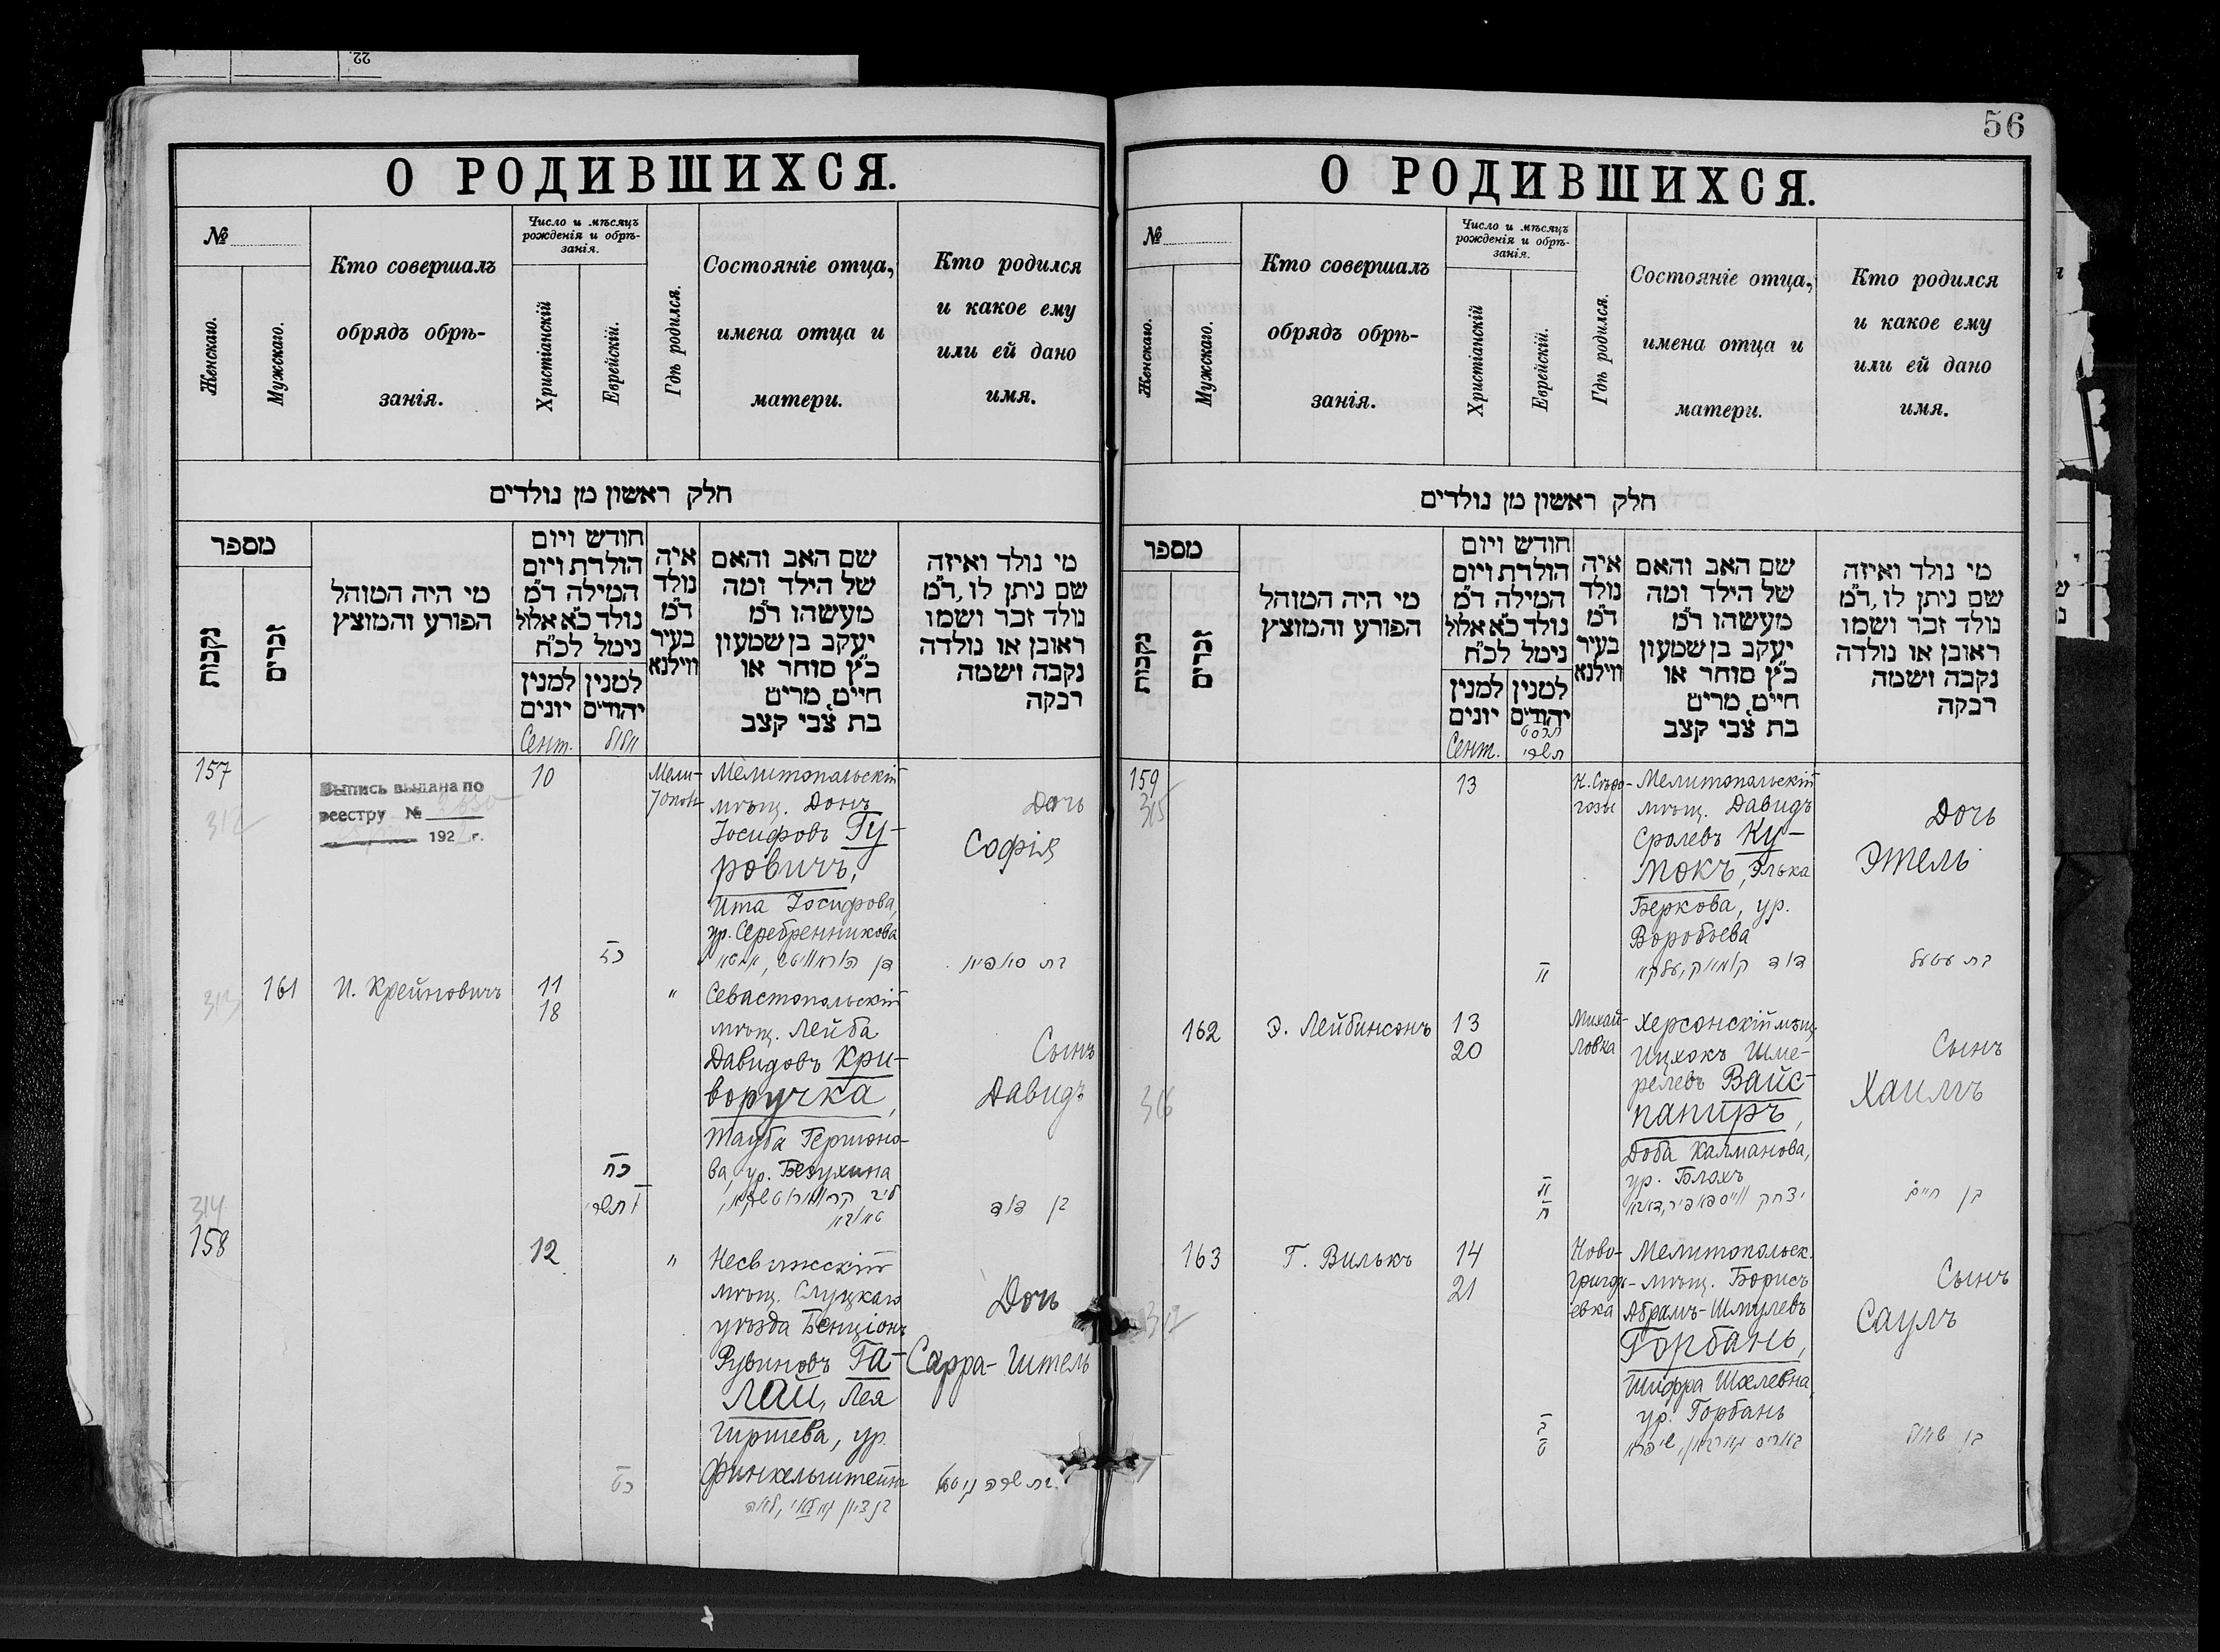 22.
О РОДИВШИХСЯ.
№
Женскаго.
Мужскаго.
Кто совершалъ
обрядъ обрѣ-
занія.
Число и мѣсяцъ
рожденія и обрѣ-
занія.
Христіанскій
Еврейскій.
Гдѣ родился.
Состояніе отца,
имена отца и
матери.
Кто родился
и какое ему
или ей дано
имя.
חלק ראשון מן נולדים
מספר
נקבות
זכרים
מי היה המוהל
הפורע והמוצץ
חודש ויום
הולדת ויום
המילה ד״מ
נולד כ״א אלול
נימל לכ״ח
למנין
יונים
למנין
יהודים
איה
נולד
ד״מ
בעיר
ווילנא
שם האב והאם
של הילד ומה
מעשהו ד״מ
יעקב בן שמעון
כ״ץ סוחר או
חיים, מריט
בת צבי קצב
מי נולד ואיזה
שם ניתן לו, ד״מ
נולד זכר ושמו
ראובן או נולדה
נקבה ושמה
רבקה
Сент.
אלול
157
312
Выпись выдана по
реестру №
192 г.
10
Мели-
тополь
Мелитопольскій
мѣщ. Донъ
Іосифовъ Гу-
ровичъ,
Ита Іосифова,
ур. Серебренникова
Дочь
Софія
כד
בת סופיא
313
161
И. Крейновичъ
11
18
"
Севастопольскій
мѣщ. Лейба
Давидовъ Кри-
воручка,
Тауба Гершоно-
ва, ур. Безухина
Сынъ
Давидъ
כה
תשרי
בן דוד
314
158
12
"
Несвижскій
мѣщ. Слуцкаго
уѣзда Бенціонъ
Рувиновъ Га-
лай, Лея
Гиршева, ур.
Финкельштейнъ
Дочь
Сарра-Гитель
בן ציון גאלאי, לאה
בת שרה גיטל
56
О РОДИВШИХСЯ.
№
Женскаго.
Мужскаго.
Кто совершалъ
обрядъ обрѣ-
занія.
Число и мѣсяцъ
рожденія и обрѣ-
занія.
Христіанскій
Еврейскій.
Гдѣ родился.
Состояніе отца,
имена отца и
матери.
Кто родился
и какое ему
или ей дано
имя.
חלק ראשון מן נולדים
מספר
נקבות
זכרים
מי היה המוהל
הפורע והמוצץ
חודש ויום
הולדת ויום
המילה ד״מ
נולד כ״א אלול
נימל לכ״ח
למנין
יונים
למנין
יהודים
איה
נולד
ד״מ
בעיר
ווילנא
שם האב והאם
של הילד ומה
מעשהו ד״מ
יעקב בן שמעון
כ״ץ סוחר או
חיים, מריט
בת צבי קצב
מי נולד ואיזה
שם ניתן לו, ד״מ
נולד זכר ושמו
ראובן או נולדה
נקבה ושמה
רבקה
Сент.
תשרי
159
315
13
Н. Сѣро-
гозы
Мелитопольскій
мѣщ. Давидъ
Сролевъ Ку-
мокъ, Элька
Беркова, ур.
Воробьева
Дочь
Этель
א
דוד קומוק, עלקא
בת עטעל
162
316
Э. Лейбинсонъ
13
20
Михай-
ловка
Херсонскій мѣщ.
Ицхокъ Шме-
релевъ Вайс-
папиръ,
Доба Калманова,
ур. Блохъ
Сынъ
Хаимъ
א
ח
יצחק ווייספאפיר, דאבא
בן חיים
163
317
Г. Вилькъ
14
21
Ново-
григорь-
евка
Мелитопольск.
мѣщ. Борисъ
Абрамъ-Шмулевъ
Горбань,
Шифра Шлевна,
ур. Горбань
Сынъ
Саулъ
ב
ט
באריס גארבאן, שיפרא
בן שאול